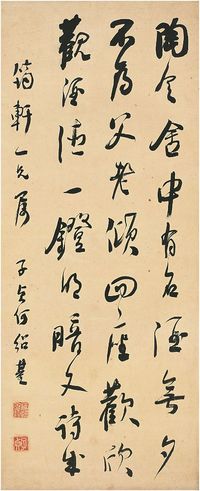 陶令舍中有名酒無夕
不為父老傾四座歡欣
觀酒德一鐙明暗又詩成
筠軒一兄屬 子貞何紹基